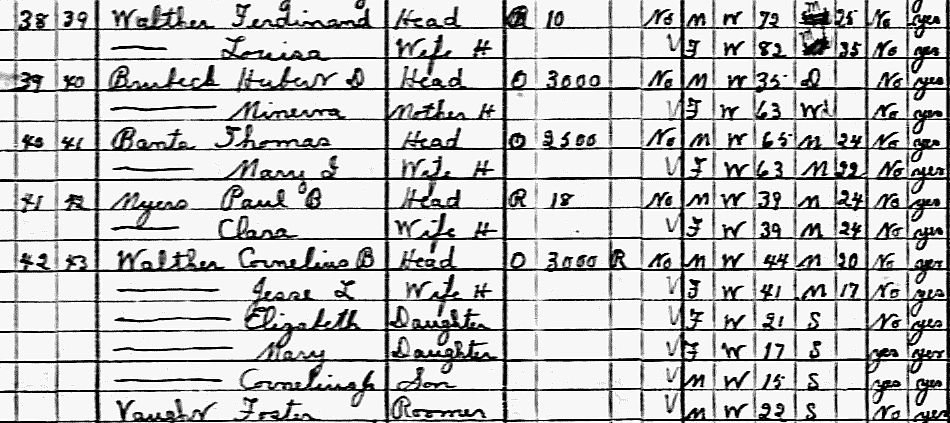 38 39 Walther Ferdinand Head R 10 No M W 72 M 25 No yes
Louisa Wife H V F W 82 M 35 No yes
39 40 Brubeck Hubert D Head O 3000 No M W 35 D No yes
Minerva Mother H V F W 63 Wd No yes
40 41 Banta Thomas Head O 2500 No M W 65 M 24 No yes
Mary I Wife H V F W 63 M 22 No yes
41 42 Myers Paul B Head R 18 No M W 39 M 24 No yes
Clara Wife H V F W 39 M 24 No yes
42 43 Walther Cornelius B Head O 3000 R No M W 44 M 20 No yes
Jesse L Wife H V F W 41 M 17 No yes
Elizabeth Daughter V F W 21 S No yes
Mary Daughter V F W 17 S yes yes
Cornelius Jr Son V M W 15 S yes yes
Vaughn Foster Roomer V M W 22 S No yes